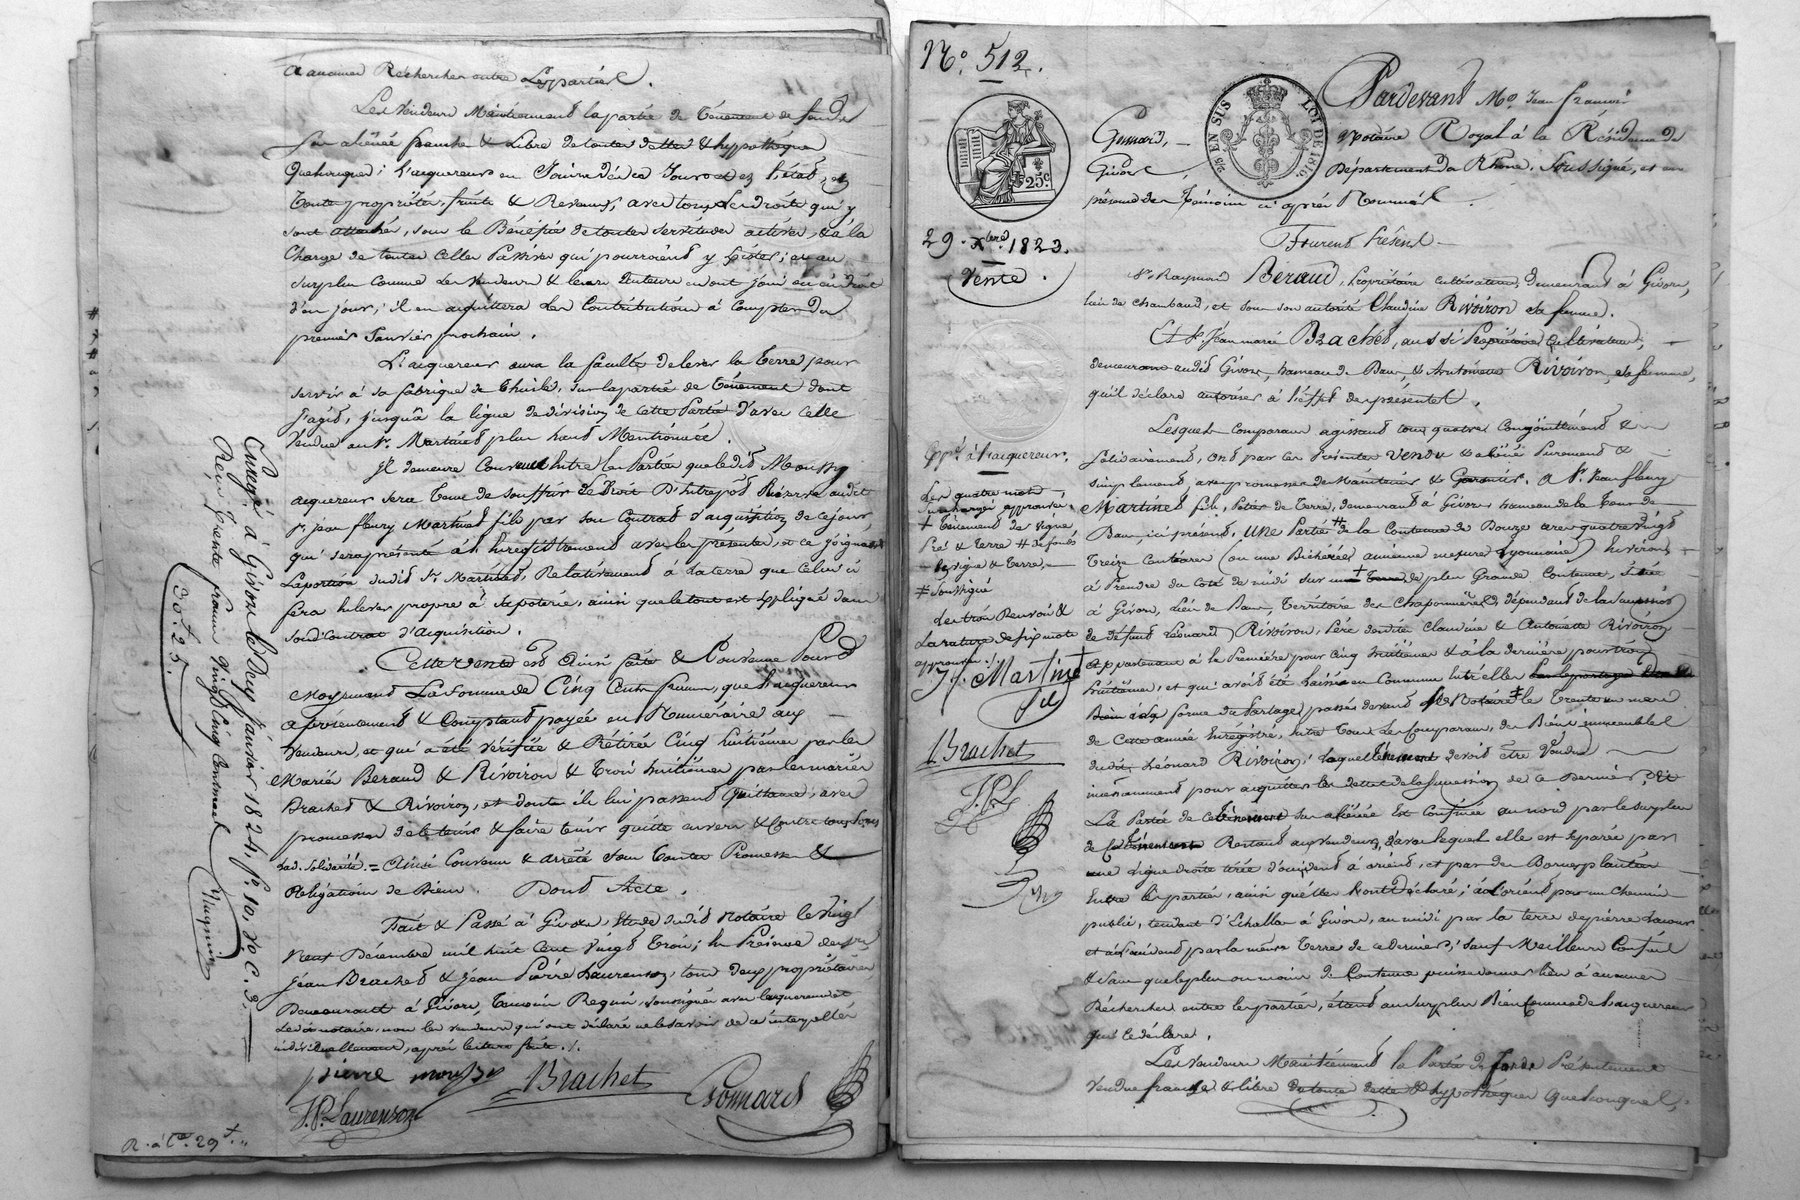 a aucunes Recherches entre Les parties.
Les Vendeurs Maintiennent la partie de Tènement de fonds
sus aliénée franche & Libre de toutes dettes & hypothèques
quelconques; L'acquereur en Jouira dès ce Jour et en l'état, en
Toute propriété, fruits & Revenus, avec tous Les droits qui y
sont attachés, sous le Bénéfice de toutes servitudes actives, & à la
Charge de toutes celles Passives qui pourroient y Exister; et au
surplus comme les Vendeurs & leurs auteurs en ont joui ou eu droit
d'en jouir; il en acquittera les Contributions à Compter du
premier Janvier prochain.
L'acquereur aura la faculté de lever la Terre pour
servir à sa fabrique de Thuiles, sur la partie de Tènement dont
s'agit, jusqu'à la ligne de division de cette Partie d'avec celle
Vendue au Sr. Martinet plus haut Mentionnée.
Il demeure Convenu Entre les Parties que ledit Moussy
acquereur sera Tenu de souffrir Le Droit D'Entrepôt Réservé audit
Sr. jean fleury Martinet fils par son Contrat d'acquisition de ce jour,
qui sera présenté à l'Enregistrement avec les présentes, et ce joignant
La portion dudit Sr. Martinet, Relativement à la terre que Celui ci
fera Enlever propre à sa poterie, ainsi que le tout est Expliqué dans
son d. Contrat d'acquisition.
Cette vente est Ainsi faite & Convenue Pour &
Moyennant La Somme de Cinq Cents francs, que l'acquereur
a présentement & Comptant payée en Numéraire aux
Vendeurs, et qui a été Vérifiée & Retirée Cinq huitièmes par les
Mariés Beraud & Rivoiron & Trois huitièmes par les mariés
Brachet & Rivoiron, et dont ils lui passent Quittance, avec
promesse de le tenir & faire tenir quitte envers & Contre tous sous
lad. solidité. = Ainsi Convenu & arrêté sous Toutes Promesses &
Obligations de Biens. Dont Acte.
Fait & Passé à Givors, Etude dudit Notaire le Vingt
Neuf Décembre mil huit Cent Vingt Trois; En Présence des Srs.
Jean Brachet & Jean Pierre Laurenson, tous deux propriétaires
Demeurant à Givors, Témoins Requis, soussignés avec l'acquereur et
Le d. notaire, non les vendeurs qui ont déclaré ne le savoir de ce interpellés
individuellement, après lecture faite ./.
pierre moussy Brachet Gonnard
J. P. Laurenson
R. à Ce. 29 f. "
Enregé. à Givors le Deux Janvier 1824, fo. 10. Ro. C. 3.
Reçu Trente francs Vingt Cinq Centimes
30 f. 25.
No. 512.
25 c.
25 C EN SUS LOI DE 1816.
29. Xbre. 1823.
Vente.
Pardevant Me. Jean francois
Gonnard, Notaire Royal à la Résidence de
Givors, Département du Rhône, Soussigné, et en
présence des Témoins ci après Nommés.
Furent Présens
Sr. Raymond Beraud, Propriétaire cultivateur, demeurant à Givors,
lieu de Chambaud, et sous son autorité Claudine Rivoiron sa femme.
Et Sr. Jean marie Brachet, aussi Propriétaire Cultivateur,
demeurant audit Givors, hameau de Bans, & Antoinette Rivoiron, sa femme,
qu'il déclare autoriser à l'effet des présentes.
Lesquels Comparans agissant tous quatre Conjointement &
Solidairement, ont par les Présentes Vendu & aliéné Purement &
simplement, avec promesse de Maintenir & Garantir, A Sr. Jean fleury
Martinet fils, Potier de Terre, demeurant à Givors hameau de la Tour de
Bans, ici présent, Une Partie # de la Contenue de Douze ares quatre vingt
Treize Centiares (ou une Bicherée ancienne mesure Lyonnaise) Environ,
à Prendre du Coté de midi sur un + Terre de plus Grande Contenue, située
à Givors, Lieu de Bans, Territoire des Chaponnières, dépendant de la succession
de défunt Léonard Rivoiron, Père desdites Claudine & Antoinette Rivoiron
Appartenant à la Première pour cinq huitièmes & à la dernière pour trois
huitièmes, et qui avoit été laissé en Commun Entr'elles
forme du Partage passé devant le Notaire # le Trente un mars
de Cette année Enregistré, Entre Tous Les Comparans, des Biens immeubles
dudit Léonard Rivoiron, lequel Tènement devoit être Vendu
incessamment pour acquitter les dettes de la succession de ce Dernier.
La Partie de ce Tènement sus aliénée Est Confinée au nord par le surplus
de ce Tènement Restant aux Vendeurs, d'avec lequel elle est séparée par
une Ligne droite tirée d'occident à orient, et par des Bornes plantées
Entre les parties, ainsi qu'elles l'ont Déclaré; à l'orient par un Chemin
public, tendant d'Echallas à Givors, au midi par la terre de pierre
et à l'occident par la même Terre de ce dernier; sauf Meilleurs Confins
& sans que le plus ou moins de Contenue puisse donner lieu à aucunes
Recherches entre les parties, étant au surplus Bien Connue de l'acquereur
qui Le déclare.
Les Vendeurs Maintiennent la Partie de fonds Présentement
Vendue franche & libre de toutes dettes & hypothèques Quelconques,
Expé. à l'acquereur.
Les quatre mots
surchargés approuvés
+ Tènement de vigne
Pré & Terre # de fonds
vigne & Terre,
# soussigné
Les trois Renvois &
La rature de six mots
approuvés./.
J. f. Martinet
fils
Brachet
J. P. L.